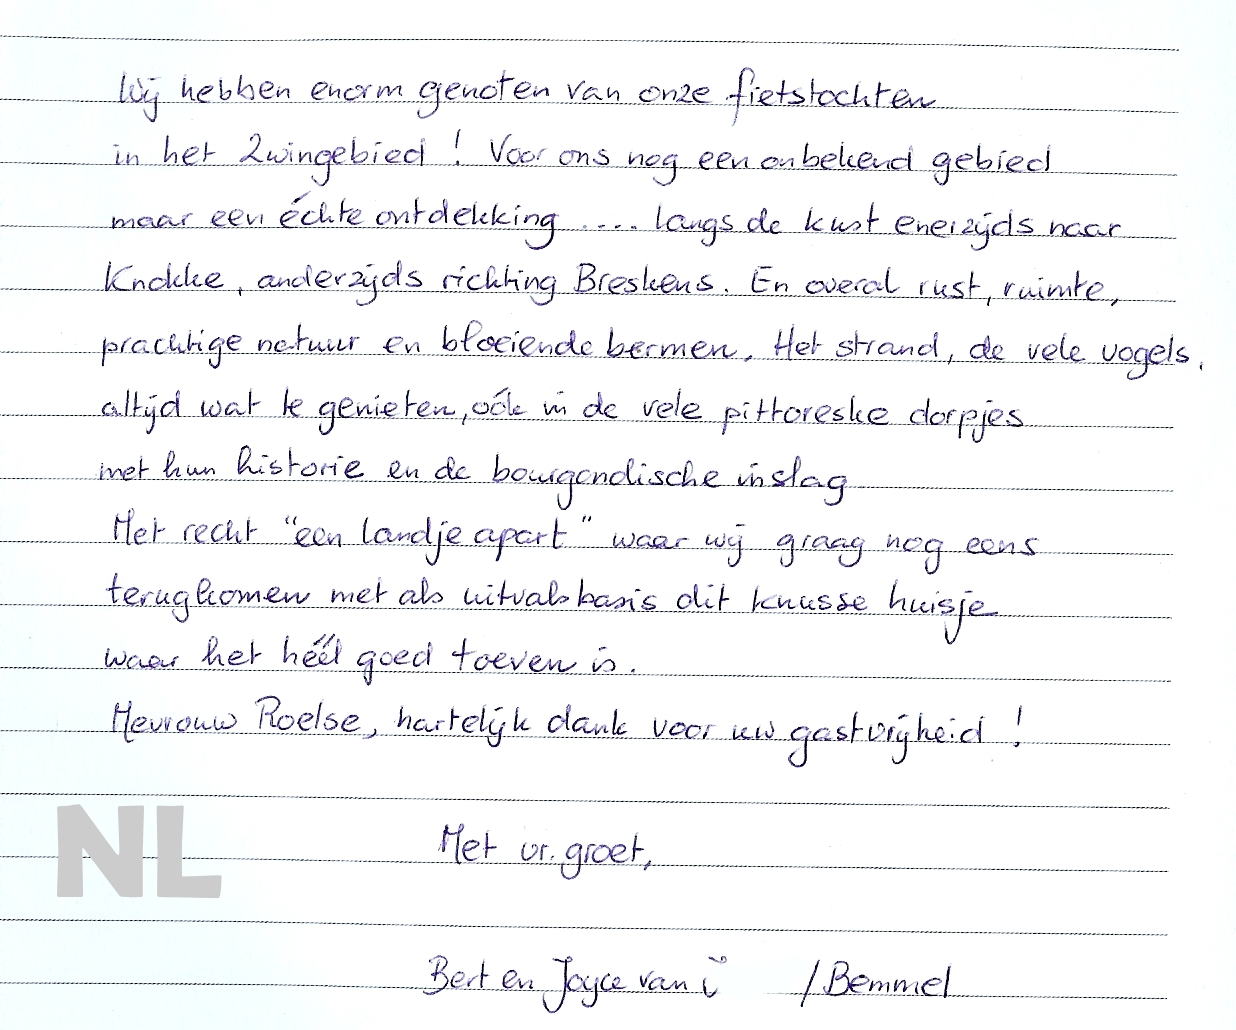 Wij hebben enorm genoten van onze fietstochten
in het Zwingebied ! Voor ons nog een onbekend gebied
maar een échte ontdekking .... langs de kust enerzijds naar
Knokke, anderzijds richting Breskens. En overal rust, ruimte,
prachtige natuur en bloeiende bermen. Het strand, de vele vogels,
altijd wat te genieten, oók in de vele pittoreske dorpjes
met hun historie en de bourgondische inslag
Met recht "een landje apart" waar wij graag nog eens
terugkomen met als uitvalsbasis dit knusse huisje
waar het héél goed toeven is.
Mevrouw Roelse, hartelijk dank voor uw gastvrijheid !
NL
Met vr. groet,
Bert en Joyce van /Bemmel